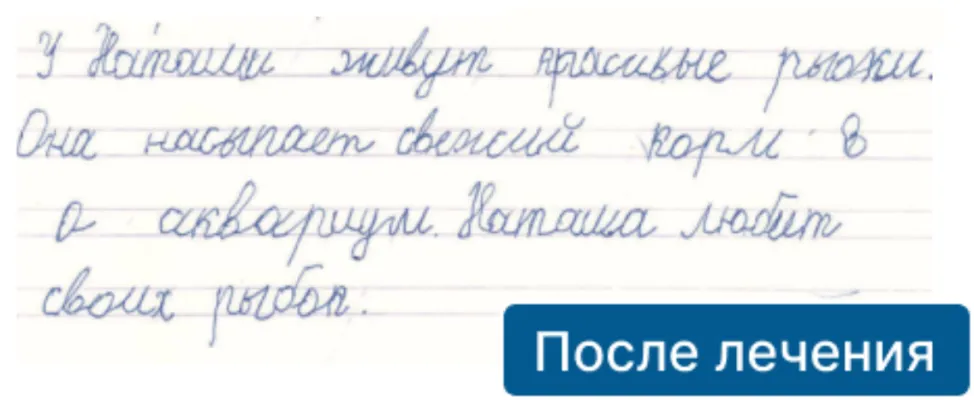 У Наташи живут красивые рыбки.
Она насыпает свежий корм в
о аквариум. Наташа любит
своих рыбоп.
После лечения